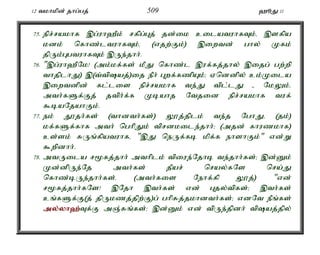 12 வமாமின் தாப்பத் 509 ஹூது 11
75. நிச்சயமாக இப்ராஹீம் சகிப்புத் தன்மை உடையவராகவும், இளகிய
மனம் கொண்டவராகவும், (எதற்கும்) இறைவன் பால் முகம்
திரும்புபவராகவும் இருந்தார்.
76. "இப்ராஹீமே! (அம்மக்கள் மீது கொண்ட இரக்கத்தால் இதைப் பற்றி
வாதிடாது) இ(வ்விஷயத்)தை நீர் புறக்கணியும்; ஏனெனில் உம்முடைய
இறைவனின் கட்டளை நிச்சயமாக வந்து விட்டது - மேலும்,
அவர்களுக்குத் தவிர்க்க முடியாத வேதனை நிச்சயமாக வரக்
கூடியதேயாகும்.
77. நம் தூதர்கள் (வானவர்கள்) லூத்திடம் வந்த போது, (தம்)
மக்களுக்காக அவர் பெரிதும் விசனமடைந்தார்; (அதன் காரணமாக)
உள்ளம் சுருங்கியவராக, "இது நெருக்கடி மிக்க நாளாகும்" என்று
கூறினார்.
78. அவருடைய சமூகத்தார் அவரிடம் விரைந்தோடி வந்தார்கள்; இன்னும்
முன்னிருந்தே அவர்கள் தீயச் செயல்களே செய்து
கொண்டிருந்தார்கள். (அவர்களை நோக்கி லூத்) "என்
சமூகத்தார்களே! இதோ இவர்கள் என் புதல்விகள்; இவர்கள்
உங்களுக்கு(த் திருமணத்திற்கு)ப் பரிசுத்தமானவர்கள்; எனவே நீங்கள்
அல்லாஹ்வுக்கு அஞ்சுங்கள்; இன்னும் என் விருந்தினர் விஷயத்தில்